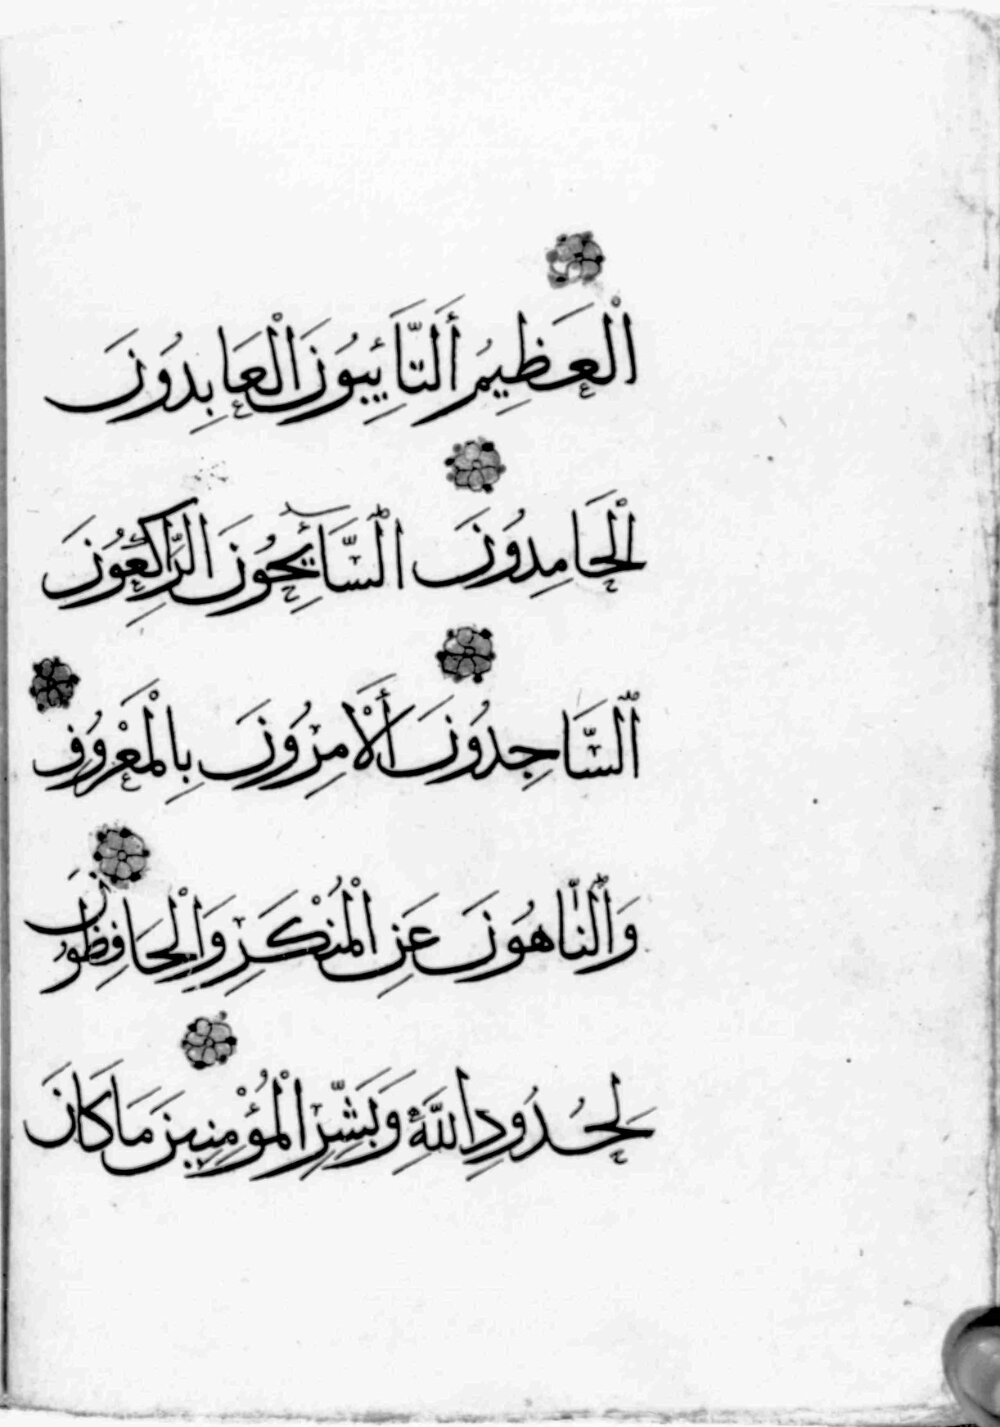 الْعَظِيمُ أَلتَّائِبُونَ الْعَابِدُونَ
الْحَامِدُونَ السَّائِحُونَ الرَّاكِعُونَ
السَّاجِدُونَ أَلْآمِرُونَ بِالْمَعْرُوفِ
وَالنَّاهُونَ عَنِ الْمُنْكَرِ وَالْحَافِظُونَ
لِحُدُودِ اللَّهِ وَبَشِّرِ الْمُؤْمِنِينَ مَا كَانَ